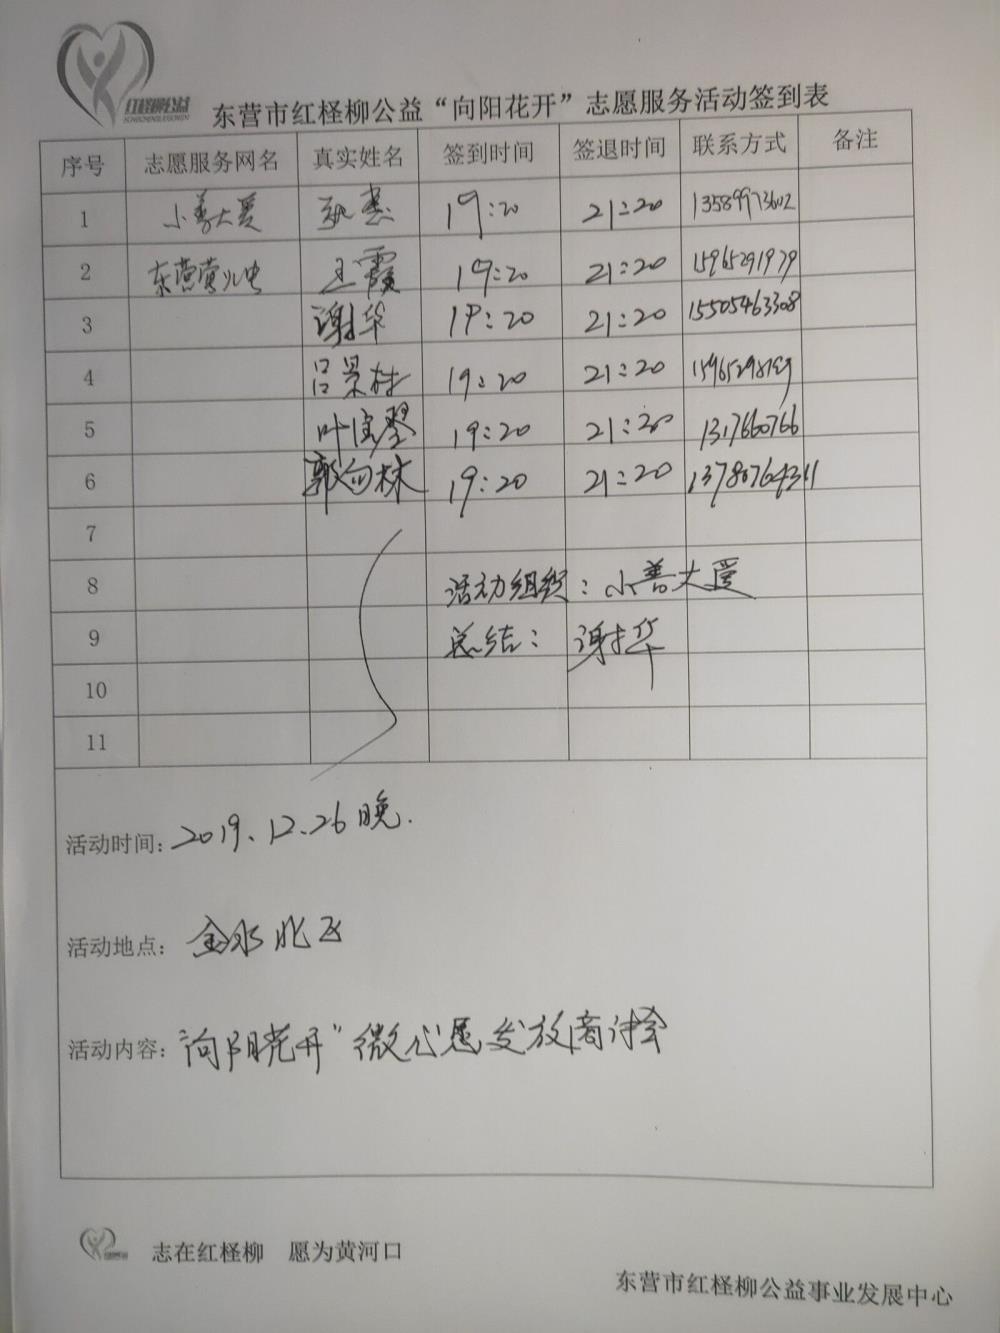 红柽柳公益
东营市红柽柳公益“向阳花开”志愿服务活动签到表
序号 志愿服务网名 真实姓名 签到时间 签退时间 联系方式 备注
1 小善大爱 19:20 21:20 13589973602
2 东营萤火虫 王霞 19:20 21:20 15965291979
3 谢华 19:20 21:20 15505463308
4 吕景村 19:20 21:20
5 叶宝琴 19:20 21:20 1317660766
6 郭向林 19:20 21:20 13780764311
7
8 活动组织:小善大爱
9 总结:谢华
10
11
活动时间:2019、12、26晚.
活动地点:金水北区
活动内容:“向阳花开”微心愿发放商讨会
志在红柽柳 愿为黄河口
东营市红柽柳公益事业发展中心